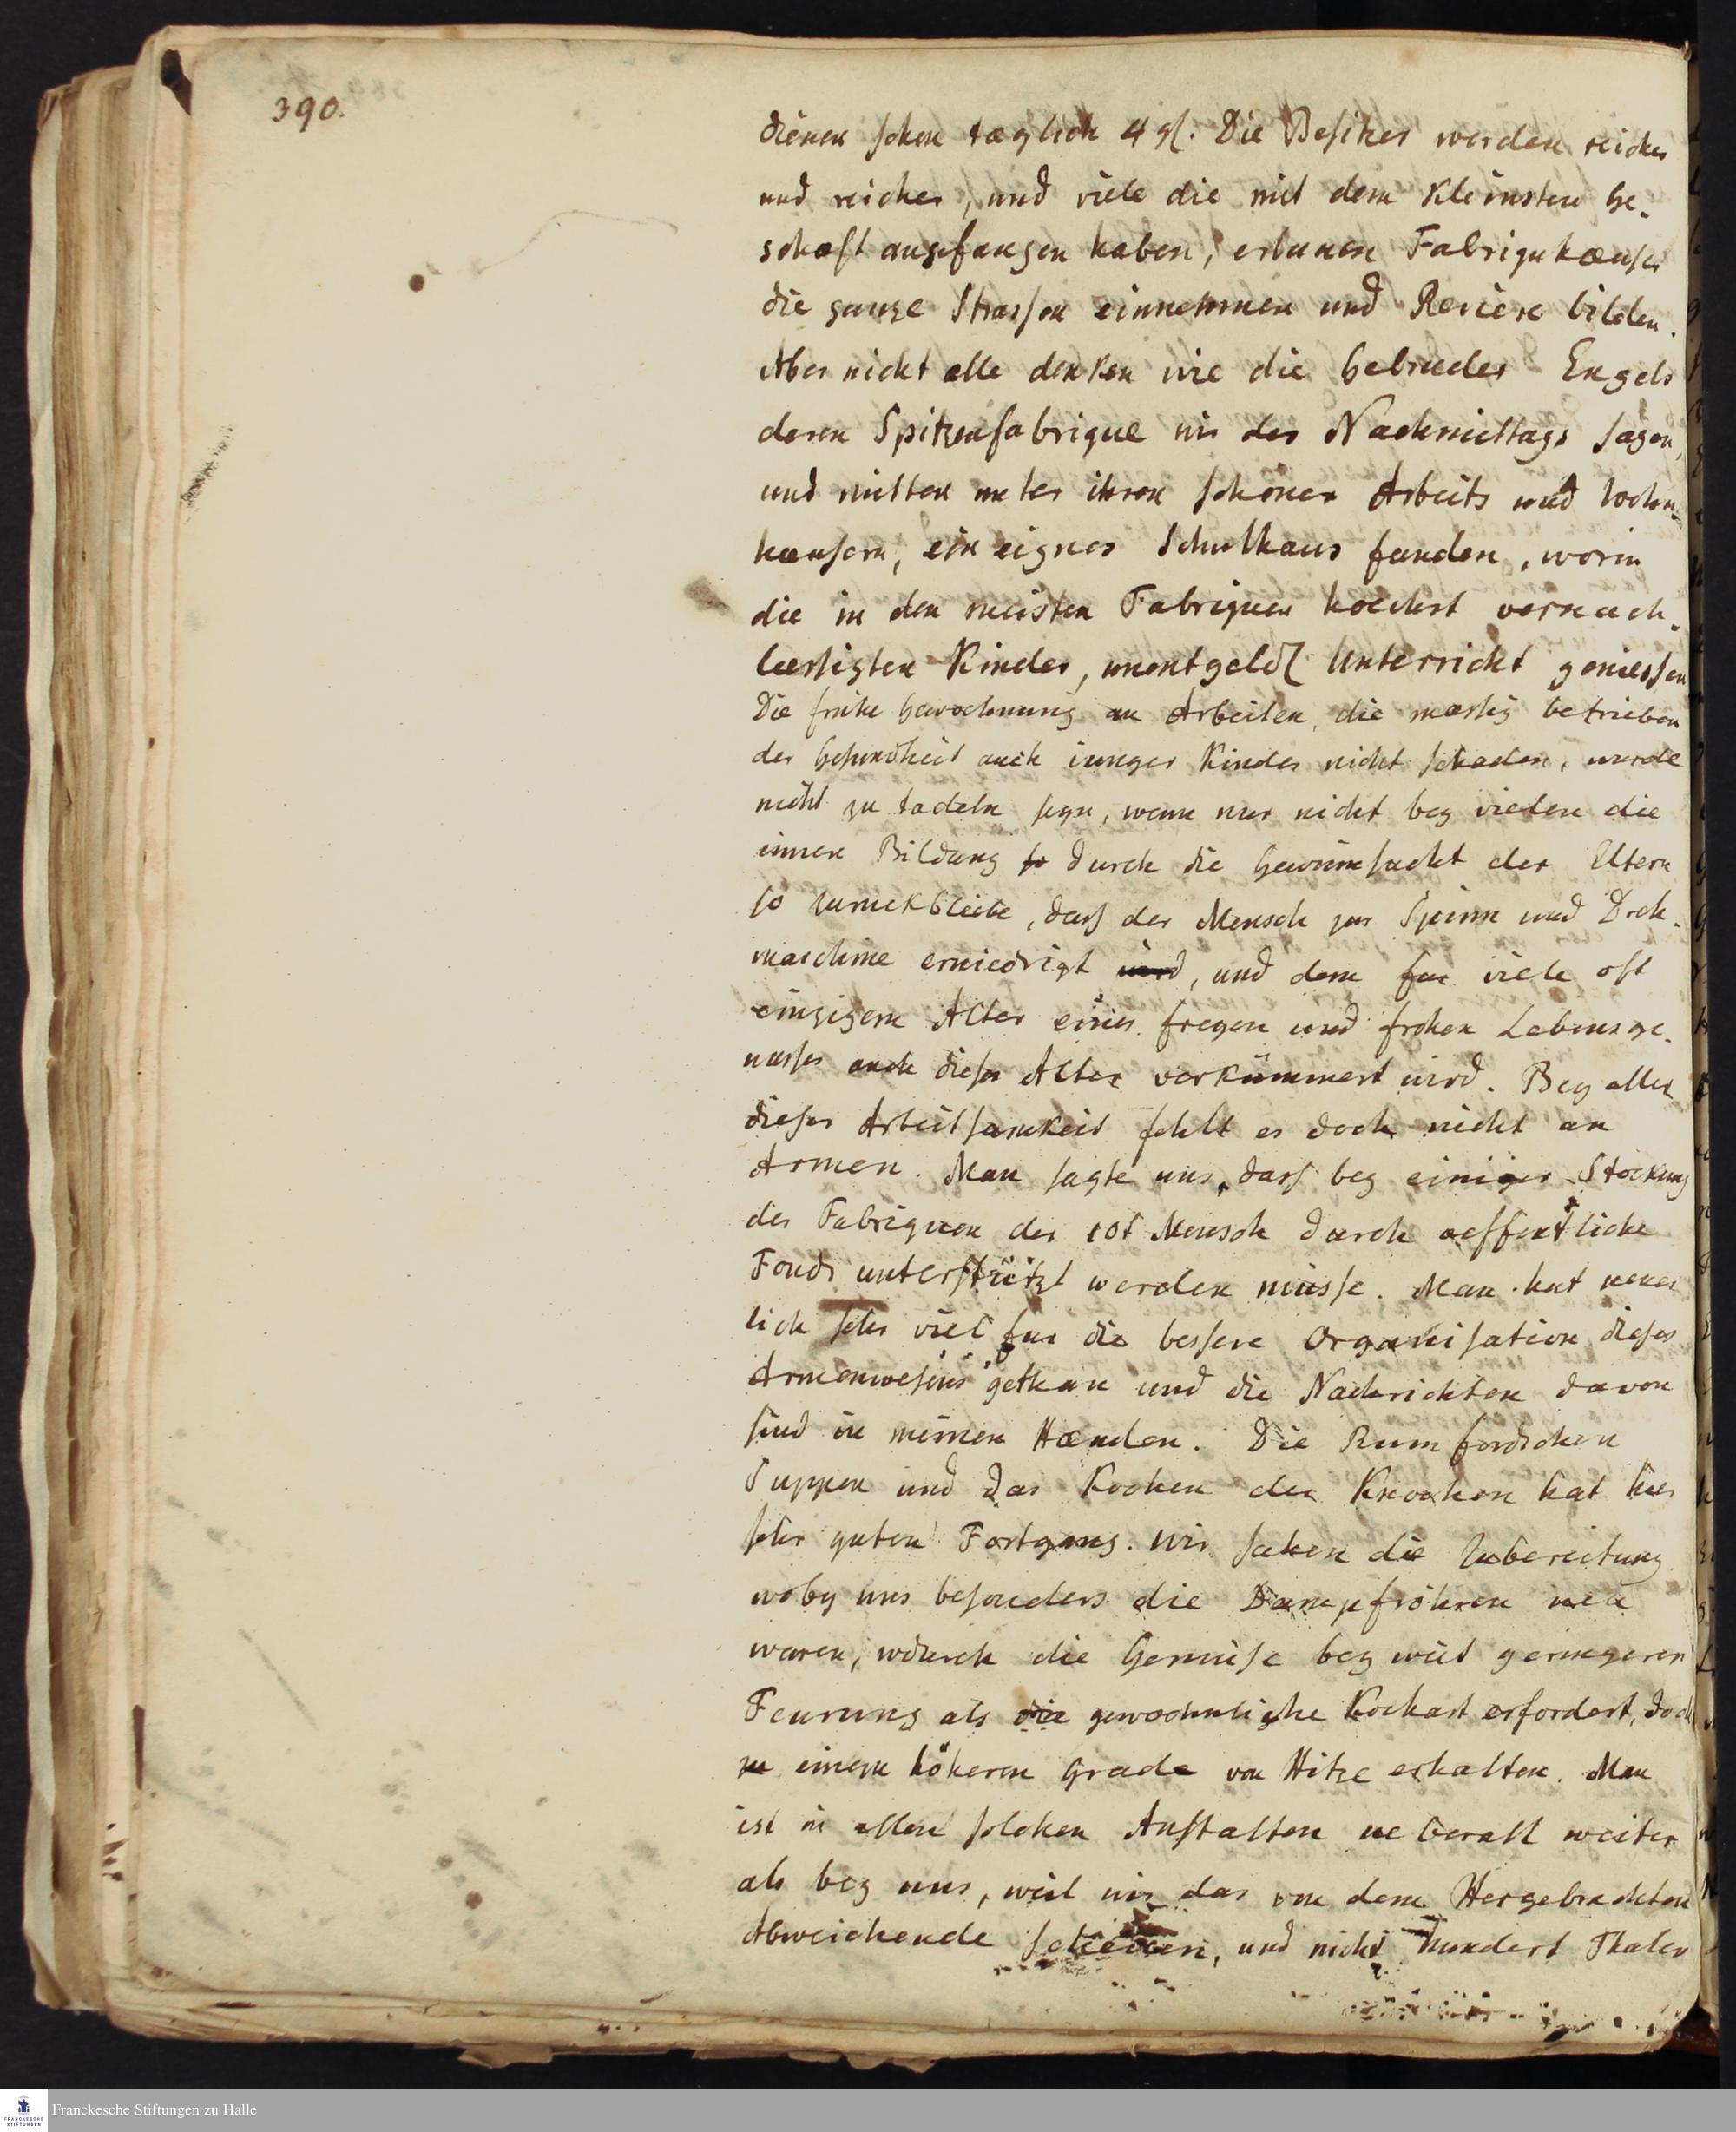 390.
dienen schon tæglich 4 gl. Die Besitzer werden reicher
und reicher, und viele die mit dem Kleinsten Ge-
schæft angefangen haben, erbauen Fabriquhæuser
die ganze Strassen einnehmen und Reviere bilden.
Aber nicht alle denken wie die Gebrueder Engels
deren Spitzenfabrique wir des Nachmittags sahen,
und mitten unter ihren schönen Arbeits und Wohn-
hæusern, ein eignes Schulhaus fanden, worin
die in den meisten Fabriquen hoechst vernach-
læssigten Kinder, unentgeldl Unterricht geniessen
Die fruhe Gewoehnung an Arbeiten, die mæssig betrieben
der Gesundheit auch iunger Kinder nicht schaden, wurde
nicht zu tadeln seyn, wenn nur nicht bey vielen die
innere Bildung so durch die Gewinnsucht der Eltern
so zuruckbliebe, dass der Mensch zur Spinn und Dreh-
maschine erniedrigt wird, und dem fur viele oft
einzigem Alter eines freyen und frohen Lebensge-
nusses auch dieses Alter verkümmert wird. Bey aller
dieser Arbeitsamkeit fehlt es doch nicht an
Armen. Man sagte uns, dass bey einiger Stockung
der Fabriquen der 10t Mensch durch oeffentliche
Fonds unterstützt werden müsse. Man hat neuer
lich sehr viel fur die bessere Organisation dieses
Armenwesens gethan und die Nachrichten davon
sind in meinen Hænden. Die Rumfordschen
Suppen und das Kochen der Knochen hat hier
sehr guten Fortgang. Wir sahen die Zubereitung
wobey uns besonders die Dampfröhren neu
waren, wodurch die Gemüse bey weit geringeren
Feurung als die gewoehnliche Kochart erfordert, doch
zu einem höheren Grade von Hitze erhalten. Man
ist in allen solchen Anstalten ueberall weiter
als bey uns, weil wir das von dem Hergebrachten
Abweichende scheuen, und nicht hundert Thaler
Franckesche Stiftungen zu Halle
FRANCKESCHE
STIFTUNGEN